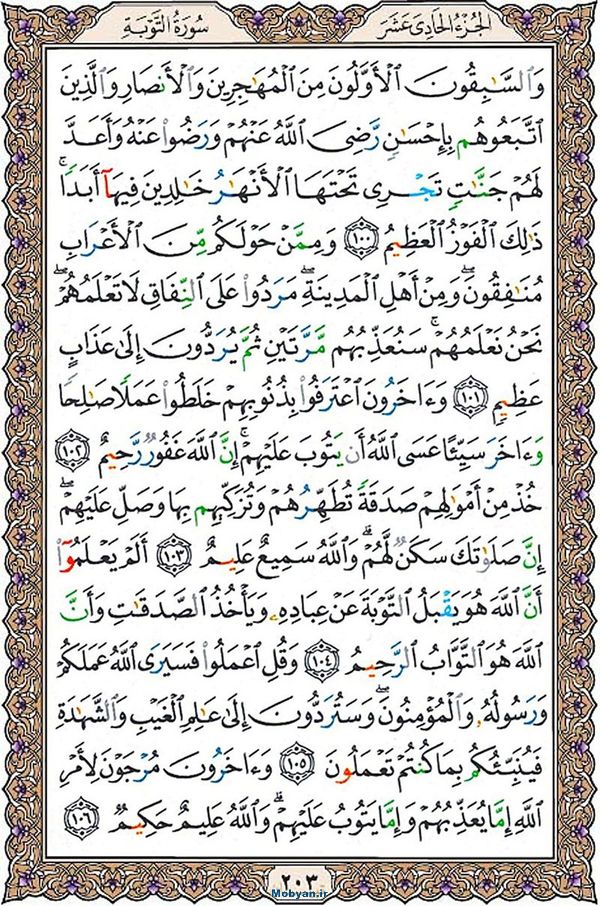 الجُزْءُ الحَادِىَ عَشَرَ
سُورَةُ التَّوْبَةِ
وَٱلسَّٰبِقُونَ ٱلْأَوَّلُونَ مِنَ ٱلْمُهَٰجِرِينَ وَٱلْأَنصَارِ وَٱلَّذِينَ
ٱتَّبَعُوهُم بِإِحْسَٰنٍ رَّضِىَ ٱللَّهُ عَنْهُمْ وَرَضُوا۟ عَنْهُ وَأَعَدَّ
لَهُمْ جَنَّٰتٍ تَجْرِى تَحْتَهَا ٱلْأَنْهَٰرُ خَٰلِدِينَ فِيهَآ أَبَدًا ۚ
ذَٰلِكَ ٱلْفَوْزُ ٱلْعَظِيمُ ١٠٠ وَمِمَّنْ حَوْلَكُم مِّنَ ٱلْأَعْرَابِ
مُنَٰفِقُونَ ۖ وَمِنْ أَهْلِ ٱلْمَدِينَةِ ۖ مَرَدُوا۟ عَلَى ٱلنِّفَاقِ لَا تَعْلَمُهُمْ ۖ
نَحْنُ نَعْلَمُهُمْ ۚ سَنُعَذِّبُهُم مَّرَّتَيْنِ ثُمَّ يُرَدُّونَ إِلَىٰ عَذَابٍ
عَظِيمٍ ١٠١ وَءَاخَرُونَ ٱعْتَرَفُوا۟ بِذُنُوبِهِمْ خَلَطُوا۟ عَمَلًا صَٰلِحًا
وَءَاخَرَ سَيِّئًا عَسَى ٱللَّهُ أَن يَتُوبَ عَلَيْهِمْ ۚ إِنَّ ٱللَّهَ غَفُورٌ رَّحِيمٌ ١٠٢
خُذْ مِنْ أَمْوَٰلِهِمْ صَدَقَةً تُطَهِّرُهُمْ وَتُزَكِّيهِم بِهَا وَصَلِّ عَلَيْهِمْ ۖ
إِنَّ صَلَوٰتَكَ سَكَنٌ لَّهُمْ ۗ وَٱللَّهُ سَمِيعٌ عَلِيمٌ ١٠٣ أَلَمْ يَعْلَمُوٓا۟
أَنَّ ٱللَّهَ هُوَ يَقْبَلُ ٱلتَّوْبَةَ عَنْ عِبَادِهِۦ وَيَأْخُذُ ٱلصَّدَقَٰتِ وَأَنَّ
ٱللَّهَ هُوَ ٱلتَّوَّابُ ٱلرَّحِيمُ ١٠٤ وَقُلِ ٱعْمَلُوا۟ فَسَيَرَى ٱللَّهُ عَمَلَكُمْ
وَرَسُولُهُۥ وَٱلْمُؤْمِنُونَ ۖ وَسَتُرَدُّونَ إِلَىٰ عَٰلِمِ ٱلْغَيْبِ وَٱلشَّهَٰدَةِ
فَيُنَبِّئُكُم بِمَا كُنتُمْ تَعْمَلُونَ ١٠٥ وَءَاخَرُونَ مُرْجَوْنَ لِأَمْرِ
ٱللَّهِ إِمَّا يُعَذِّبُهُمْ وَإِمَّا يَتُوبُ عَلَيْهِمْ ۗ وَٱللَّهُ عَلِيمٌ حَكِيمٌ ١٠٦
٢٠٣
Mobyan.ir